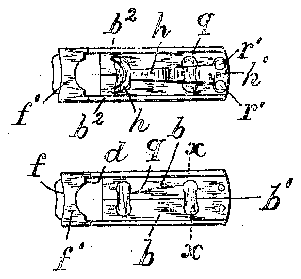 b² h q r'
h°
f' b² h r'
f d q b x
b°
f' b x